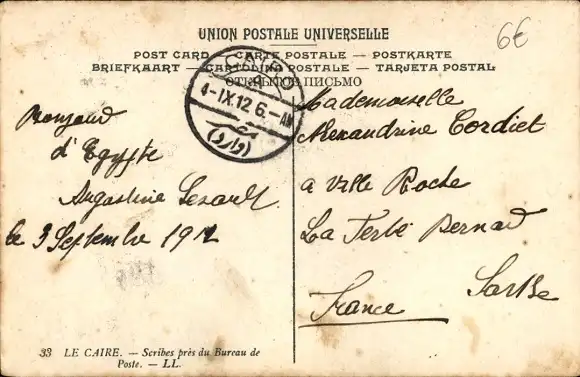 UNION POSTALE UNIVERSELLE
POST CARD – CARTE POSTALE – POSTKARTE
BRIEFKAART – CARTOLINA POSTALE – TARJETA POSTAL
ОТКРЫТОЕ ПИСЬМО
6€
CAIRO
4-IX.12 6.-AM
Bonjour
d'Egypte
Augustine
le 3 Septembre 1912
Mademoiselle
Alexandrine Cordiet
a Ville Roche
La Ferté Bernard
Sarthe
France
33 LE CAIRE. — Scribes près du Bureau de
Poste. — LL.